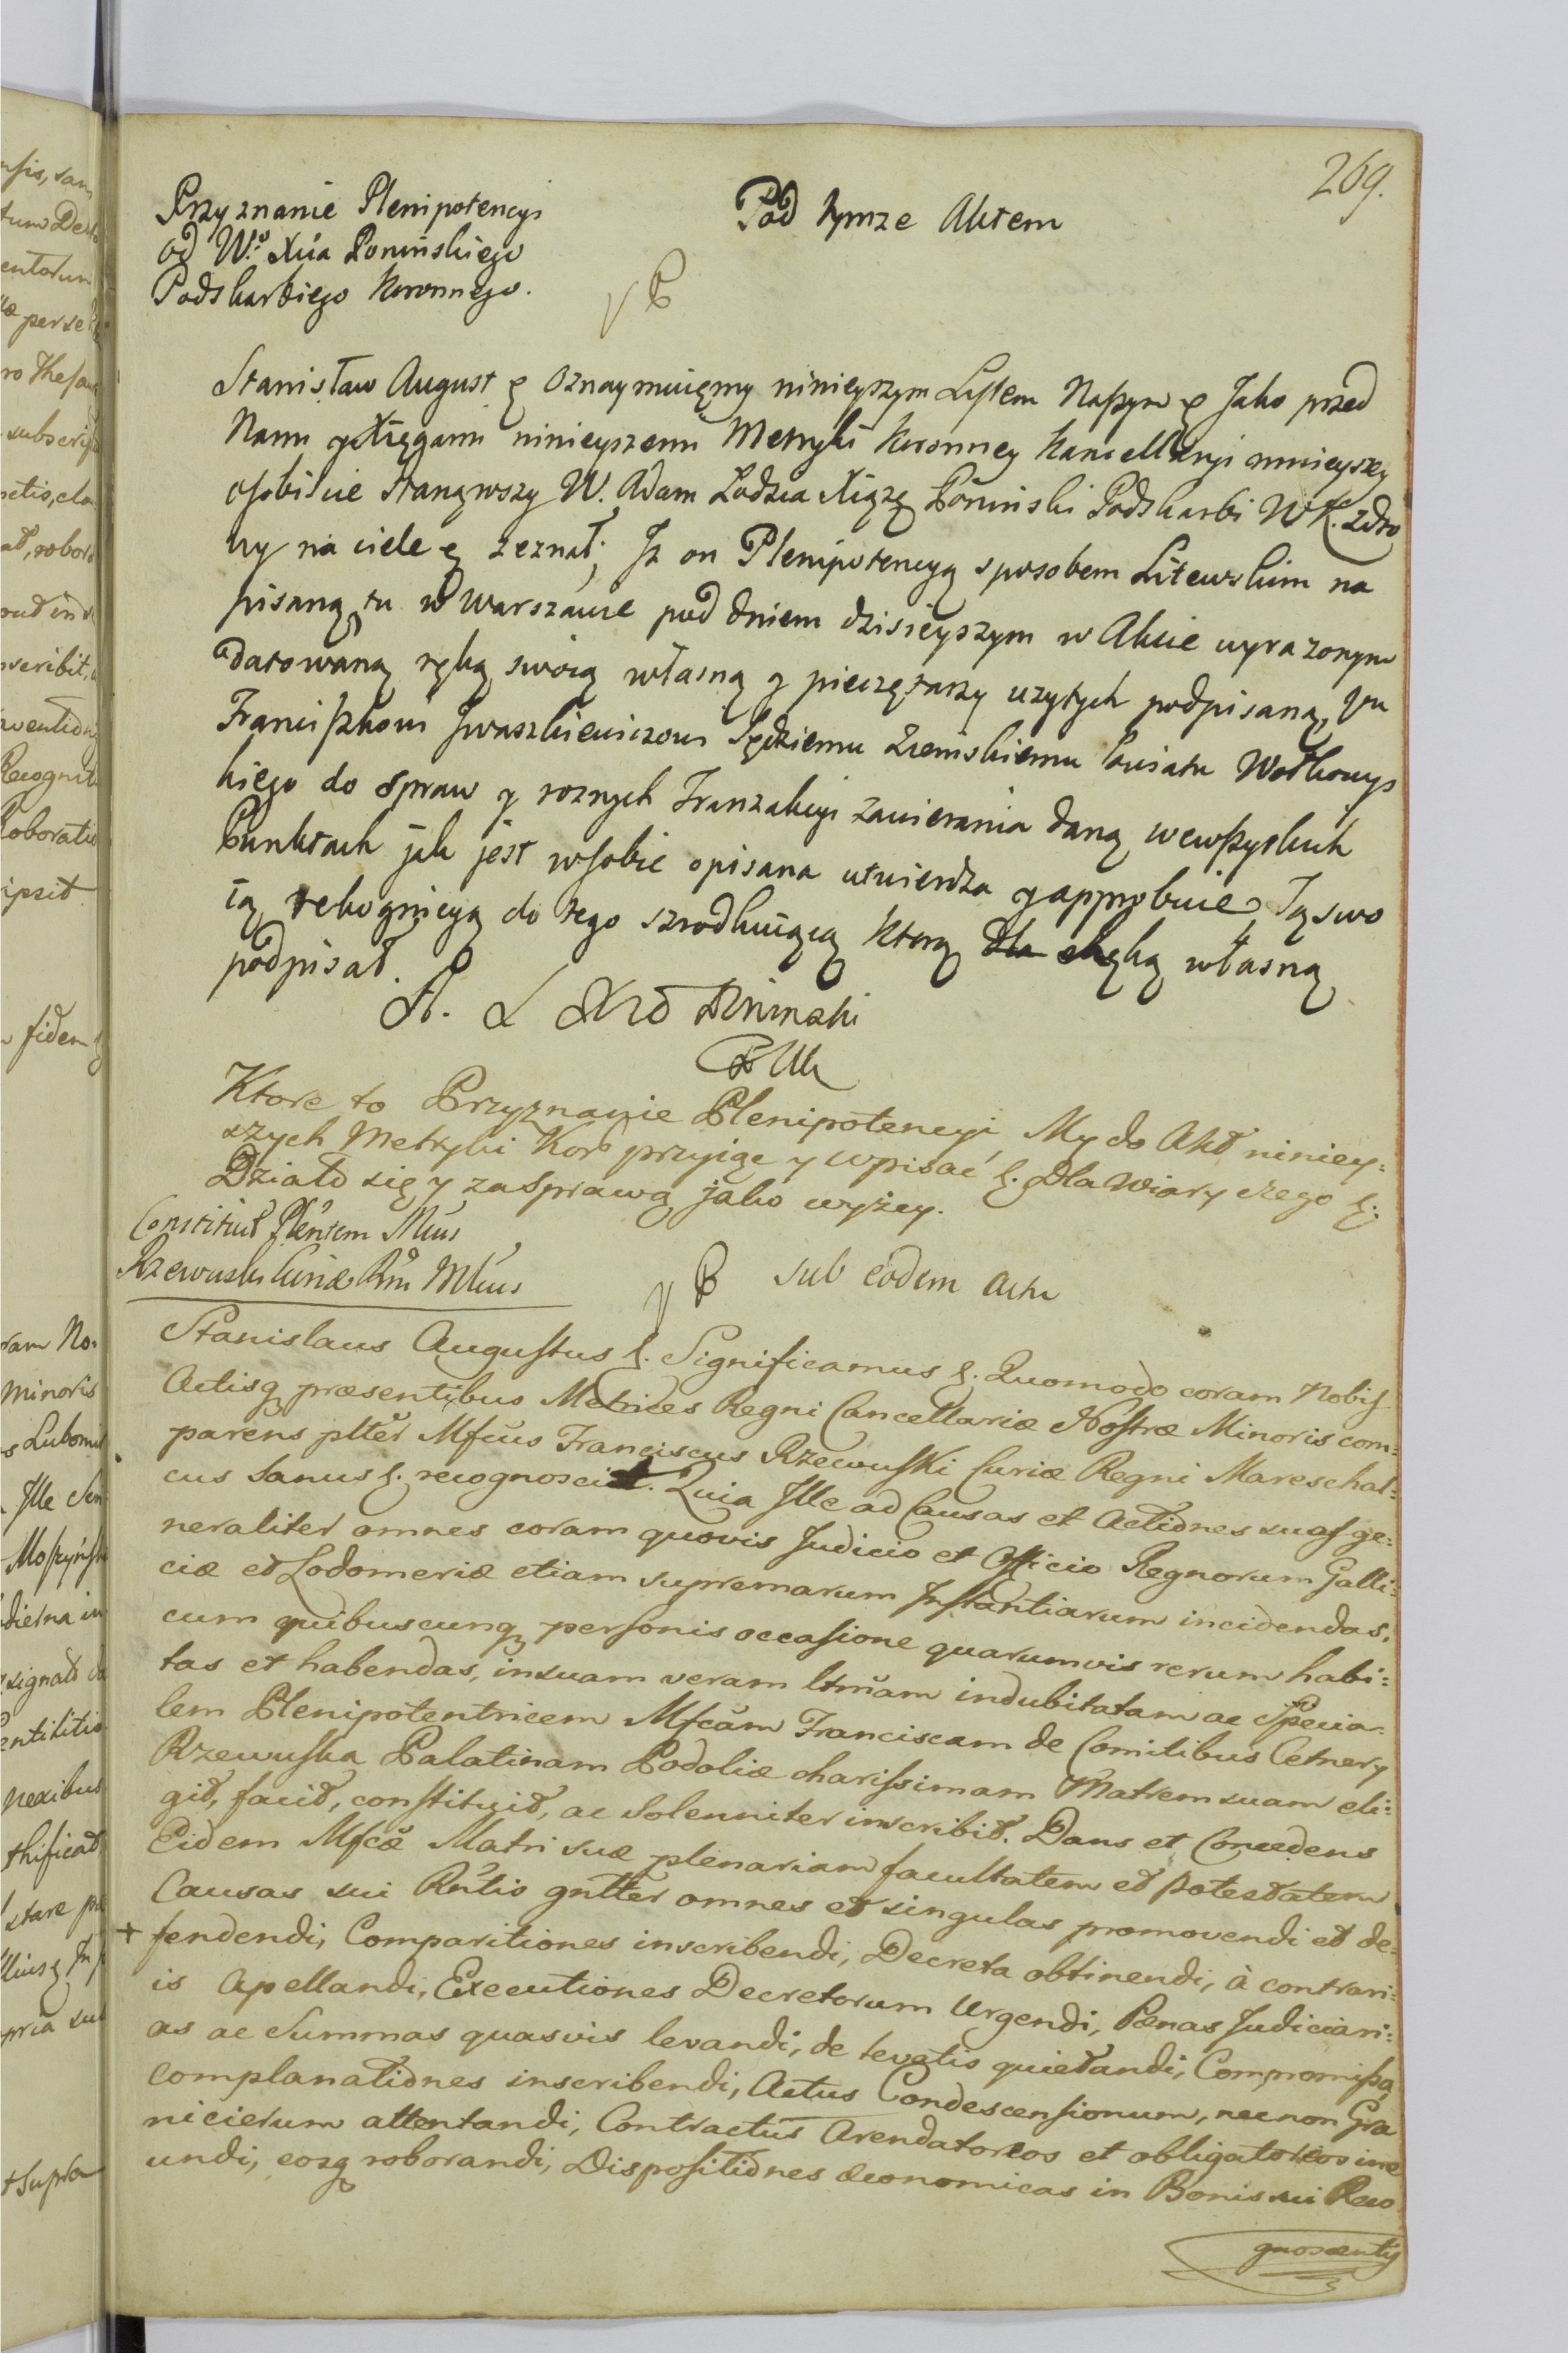 269.
Przyznanie Plenipotencyi
od W.º Xcia Ponińskiego
Podskarbiego Koronnego.
Pod tymze Aktem
Stanisław August &c Oznaymuięmy ninieyszym Lystem Naszym &c Jako przed
Nami y Xięgami ninieyszemi Metryki Koronney Kancellaryi mnieyszey
osobiscie stanąwszy W. Adam Lodzia Xiążę Poniński Podskarbi W K. zdro
wy na ciele &c zeznał; Iz on Plenipotencyą sposobem Litewskim na
pisaną tu w Warszawie pod dniem dzisieyszym w Akcie wyrazonym
datowaną ręką swoią własną y pieczętarzy uzytych podpisaną, Ur
Franciszkowi Jwaszkiewiczowi Sędziemu Ziemskiemu Powiatu Wołkowys
kiego do spraw y roznych Tranzakcyi zawierania daną we wszystkich
Punktach jak jest w sobie opisana utwierdza y approbuie, Tą swo
ią rekognicyą do tego szrodkuiącą Ktorą dla ręką własną
podpisał.
A. L X Poninski
P W K
Ktore to Przyznanie Plenipotencyi, My do Akt niniey:
szych Metryki Kor przyiąc y wpisać &. Dla Wiary czego &.
Działo się y za sprawą jako wyżey.
Constitut Plentem Mcus
Rzewuski Curiæ Rni Mlcus
sub eodem Actu
Stanislaus Augustus &. Significamus &. Quomodo coram Nobis
Actisq præsentibus Metrices Regni Cancellariæ Nostræ Minoris com:
parens pltter Mfcus Franciscus Rzewuski Curiæ Regni Mareschal:
cus Sanus &. recognoscit. Quia Ille ad Causas et Actiones suas ge:
neraliter omnes coram quovis Judicio et Officio Regnorum Galli:
ciæ et Lodomeriæ etiam supremarum Instantiarum incidendas,
cum quibuscunq personis occasione quarumvis rerum habi:
tas et habendas, in suam veram ltmam indubitatam ac Specia:
lem Plenipotentricem Mfcam Franciscam de Comitibus Cetnery
Rzewuska Palatinam Podoliæ charissimam Matrem suam eli:
git, facit, constituit, ac Solenniter inscribit. Dans et Concedens
Eidem Mfcæ Matri suæ plenariam facultatem et potestatem
Causas sui Rntis gnltter omnes et singulas promovendi et de:
+ fendendi, Comparitiones inscribendi, Decreta obtinendi, à contrari:
is Apellandi, Executiones Decretorum Urgendi, Pœnas Judiciari:
as ac Summas quasvis levandi, de levatis quietandi, Compromissa,
Complanationes inscribendi, Actus Condescensionum, necnon Gra
nicierum attentandi, Contractus Arendatorios et obligatorios ine
undi, eosq roborandi, Dispositiones œconomicas in Bonis sui Reco
gnoscentis